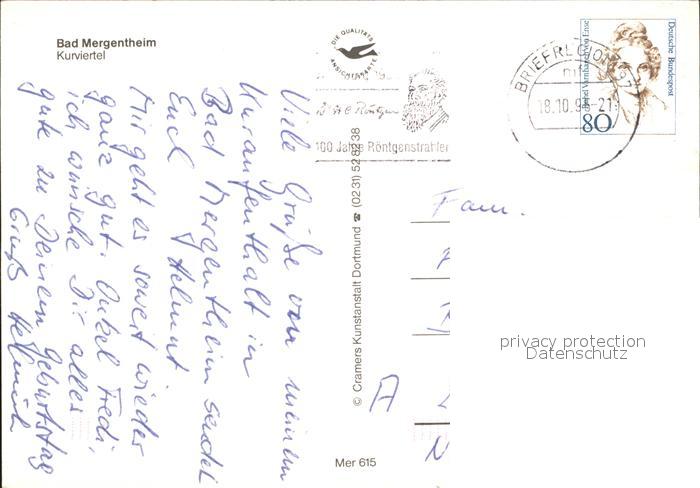 Bad Mergentheim
Kurviertel
DIE QUALITÄTS
ANSICHTSKARTE
100 Jahre Röntgenstrahlen
BRIEFREGION
18.10.9 -21
Deutsche Bundespost
Rahel Varnhagen von Ense
80
Viele Grüße von meinem
Kuraufenthalt in
Bad Mergentheim sendet
Euch Helmut.
Mir geht es soweit wieder
ganz gut. Onkel Fredi,
ich wünsche Dir alles
gute zu Deinem Geburtstag
Gruß Helmut
© Cramers Kunstanstalt Dortmund ☎ (0231) 528238
Fam.
A
privacy protection
Datenschutz
Mer 615